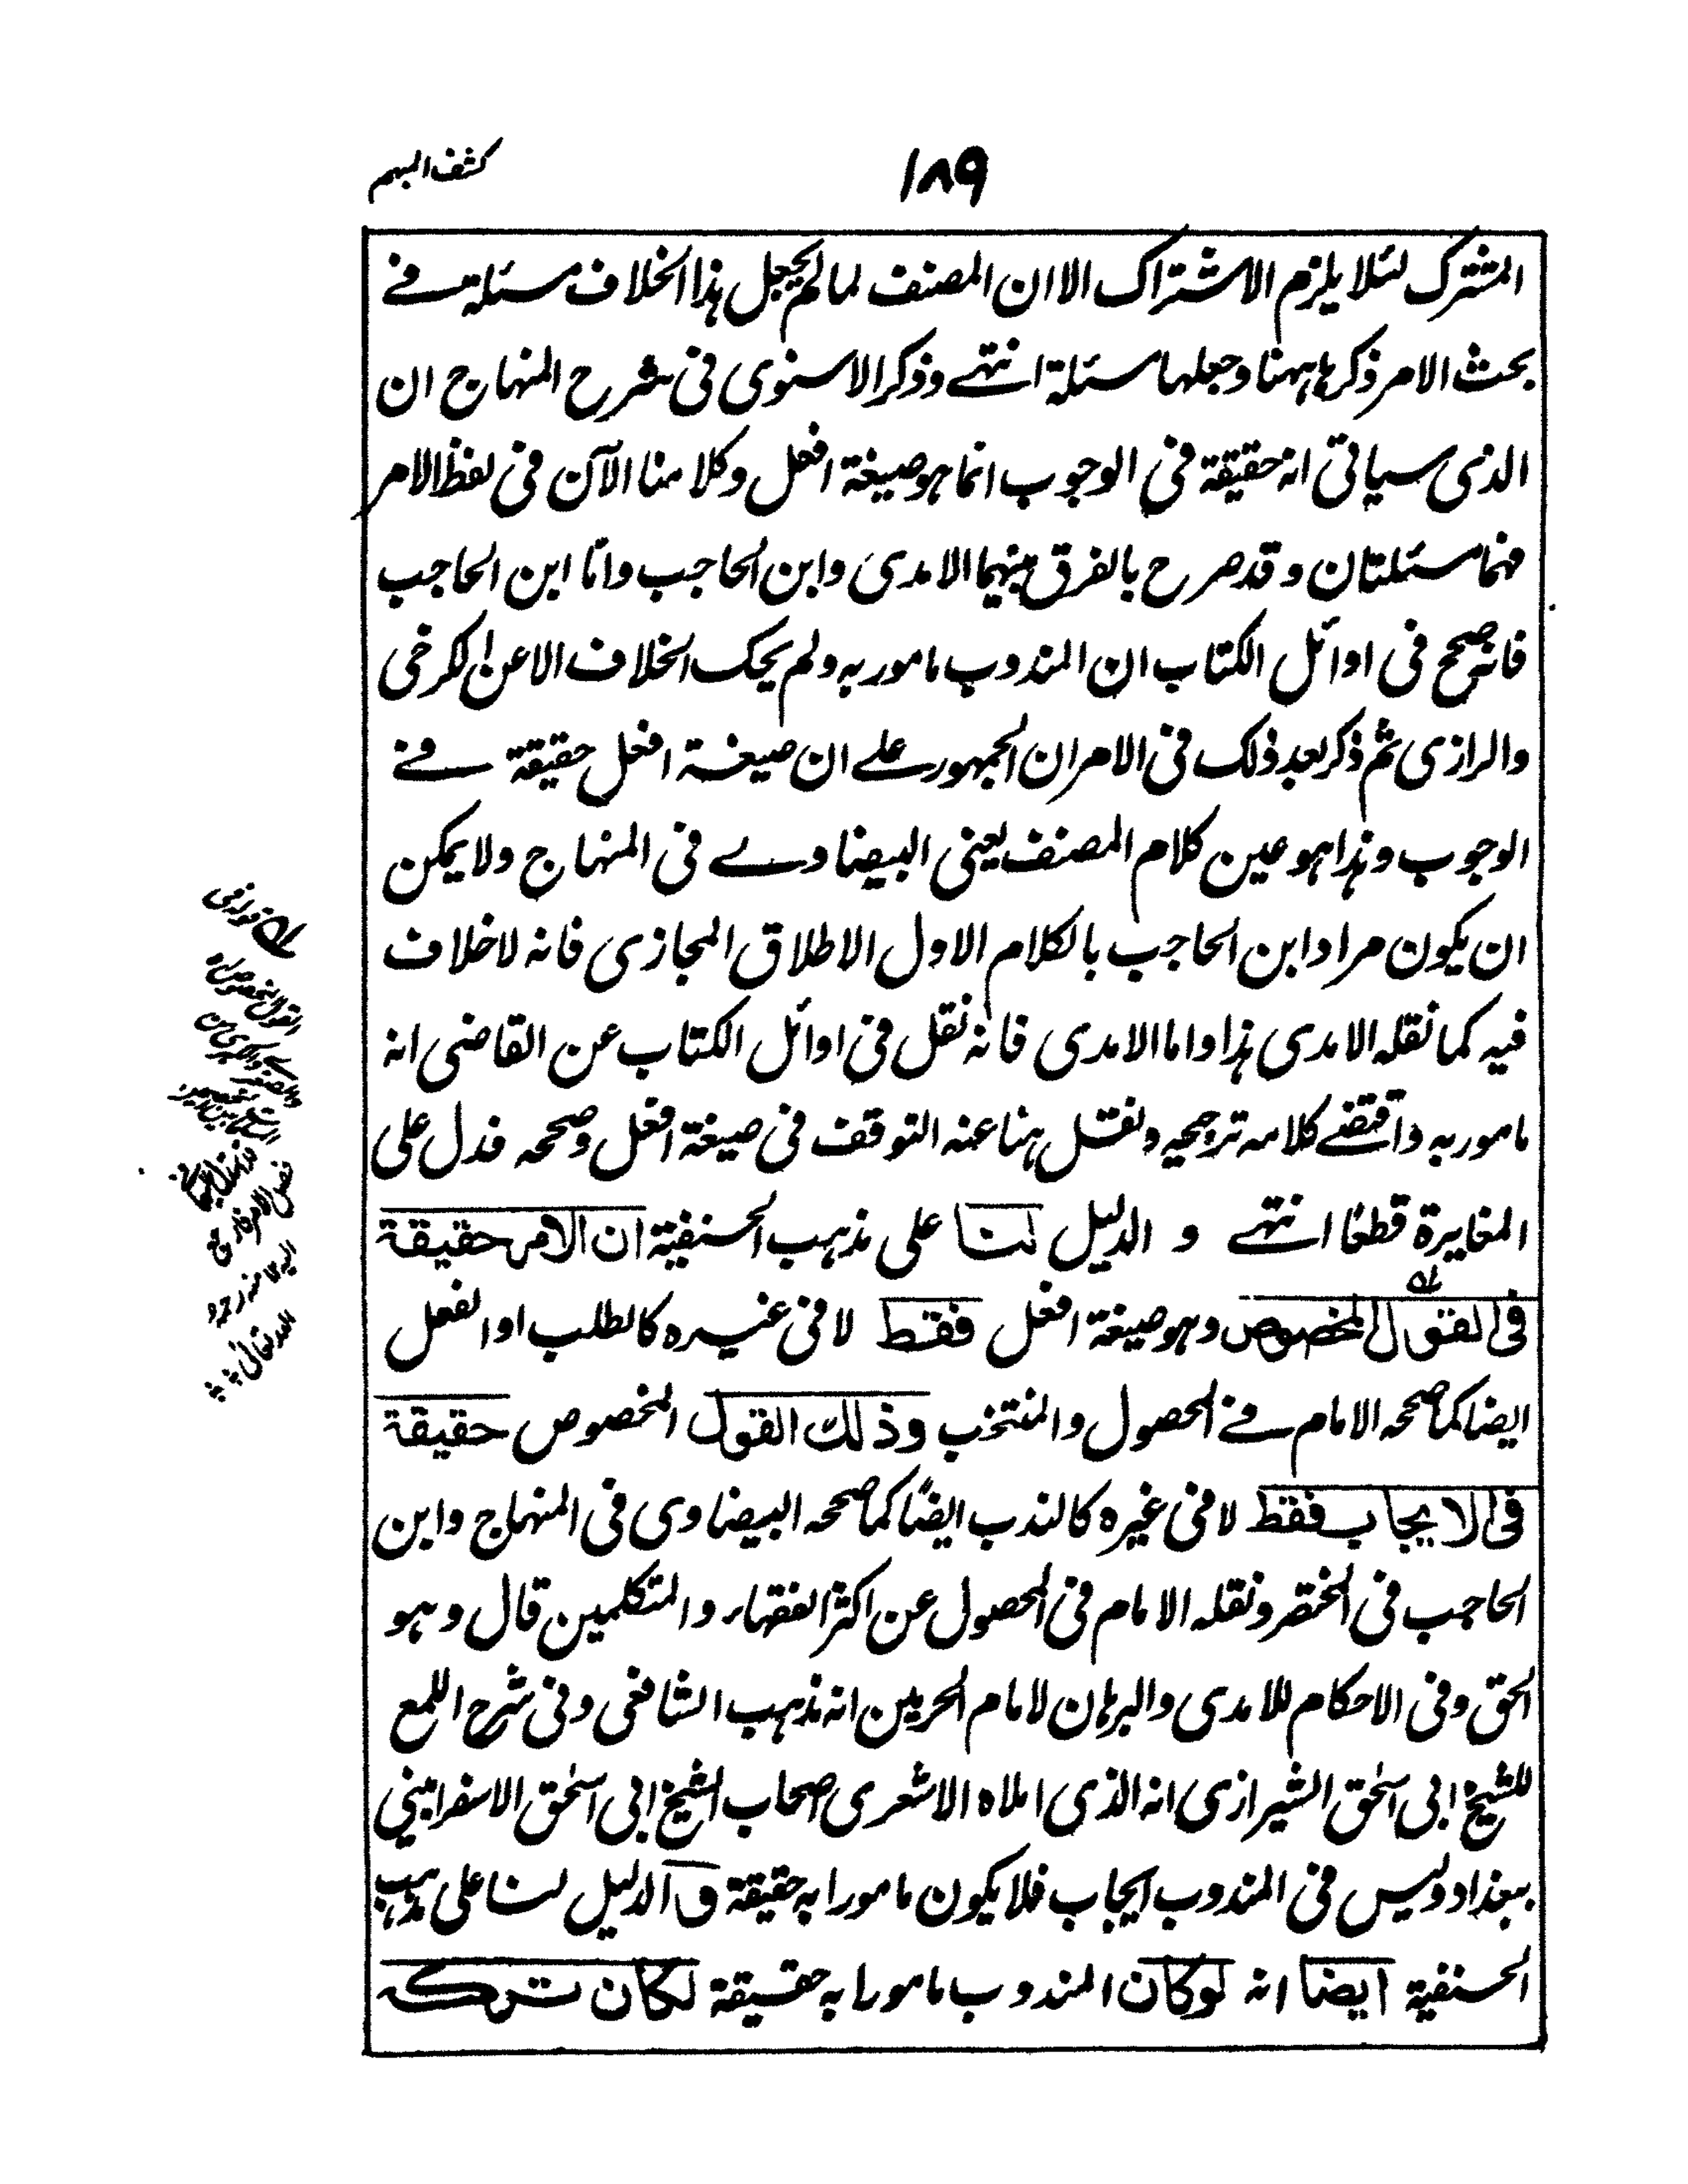 كشف المبهم
١٨٩
المشترك لئلا يلزم الاشتراك الا ان المصنف لما لم يجعل هذا الخلاف مسئلة في
بحث الامر ذكرها ههنا وجعلها مسئلة انتهى وذكر الاسنوى فى شرح المنهاج ان
الذى سياتى انه حقيقة في الوجوب انما هو صيغة افعل وكلامنا الآن فى لفظ الامر
فهما مسئلتان وقد صرح بالفرق بينهما الامدى وابن الحاجب واما ابن الحاجب
فانه صحح فى اوائل الكتاب ان المندوب مامور به ولم يحك الخلاف الا عن الكرخى
والرازى ثم ذكر بعد ذلك فى الامر ان الجمهور على ان صيغة افعل حقيقة في
الوجوب وهذا هو عين كلام المصنف يعنى البيضاوى فى المنهاج ولا يمكن
ان يكون مراد ابن الحاجب بالكلام الاول الاطلاق المجازى فانه لا خلاف
فيه كما نقله الامدى هذا واما الامدى فانه نقل فى اوائل الكتاب عن القاضى انه
مامور به واقتضى كلامه ترجيحه ونقل هنا عنه التوقف فى صيغة افعل وصححه فدل على
المغايرة قطعًا انتهى و الدليل لنا على مذهب الحنفية ان الامر حقيقة
فى القول المخصوص وهو صيغة افعل فقط لا فى غيره كالطلب او الفعل
ايضا كما صححه الامام في المحصول والمنتخب وذلك القول المخصوص حقيقة
فى الايجاب فقط لا فى غيره كالندب ايضًا كما صححه البيضاوى فى المنهاج وابن
الحاجب فى المختصر ونقله الامام فى المحصول عن اكثر الفقهاء والمتكلمين قال وهو
الحق وفى الاحكام للامدى والبرهان لامام الحرمين انه مذهب الشافعى وفى شرح اللمع
للشيخ ابى اسحٰق الشيرازى انه الذى املاه الاشعرى صحاب الشيخ ابى اسحٰق الاسفرايينى
ببغداد وليس فى المندوب ايجاب فلا يكون مامورا به حقيقة و الدليل لنا على مذهب
الحنفية ايضا انه لو كان المندوب مامورا به حقيقة لكان تركه
قوله فى
القول المخصوص
اليه لا منه رحمه
الله تعالى